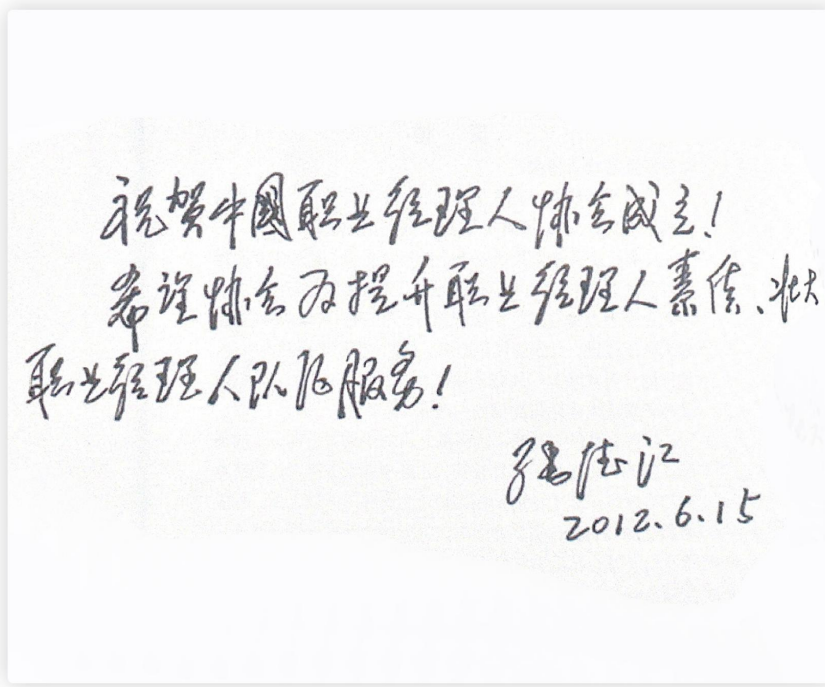 祝贺中國职业经理人协会成立！
希望协会为提升职业经理人素质、壮大
职业经理人队伍服务！
张德江
2012.6.15